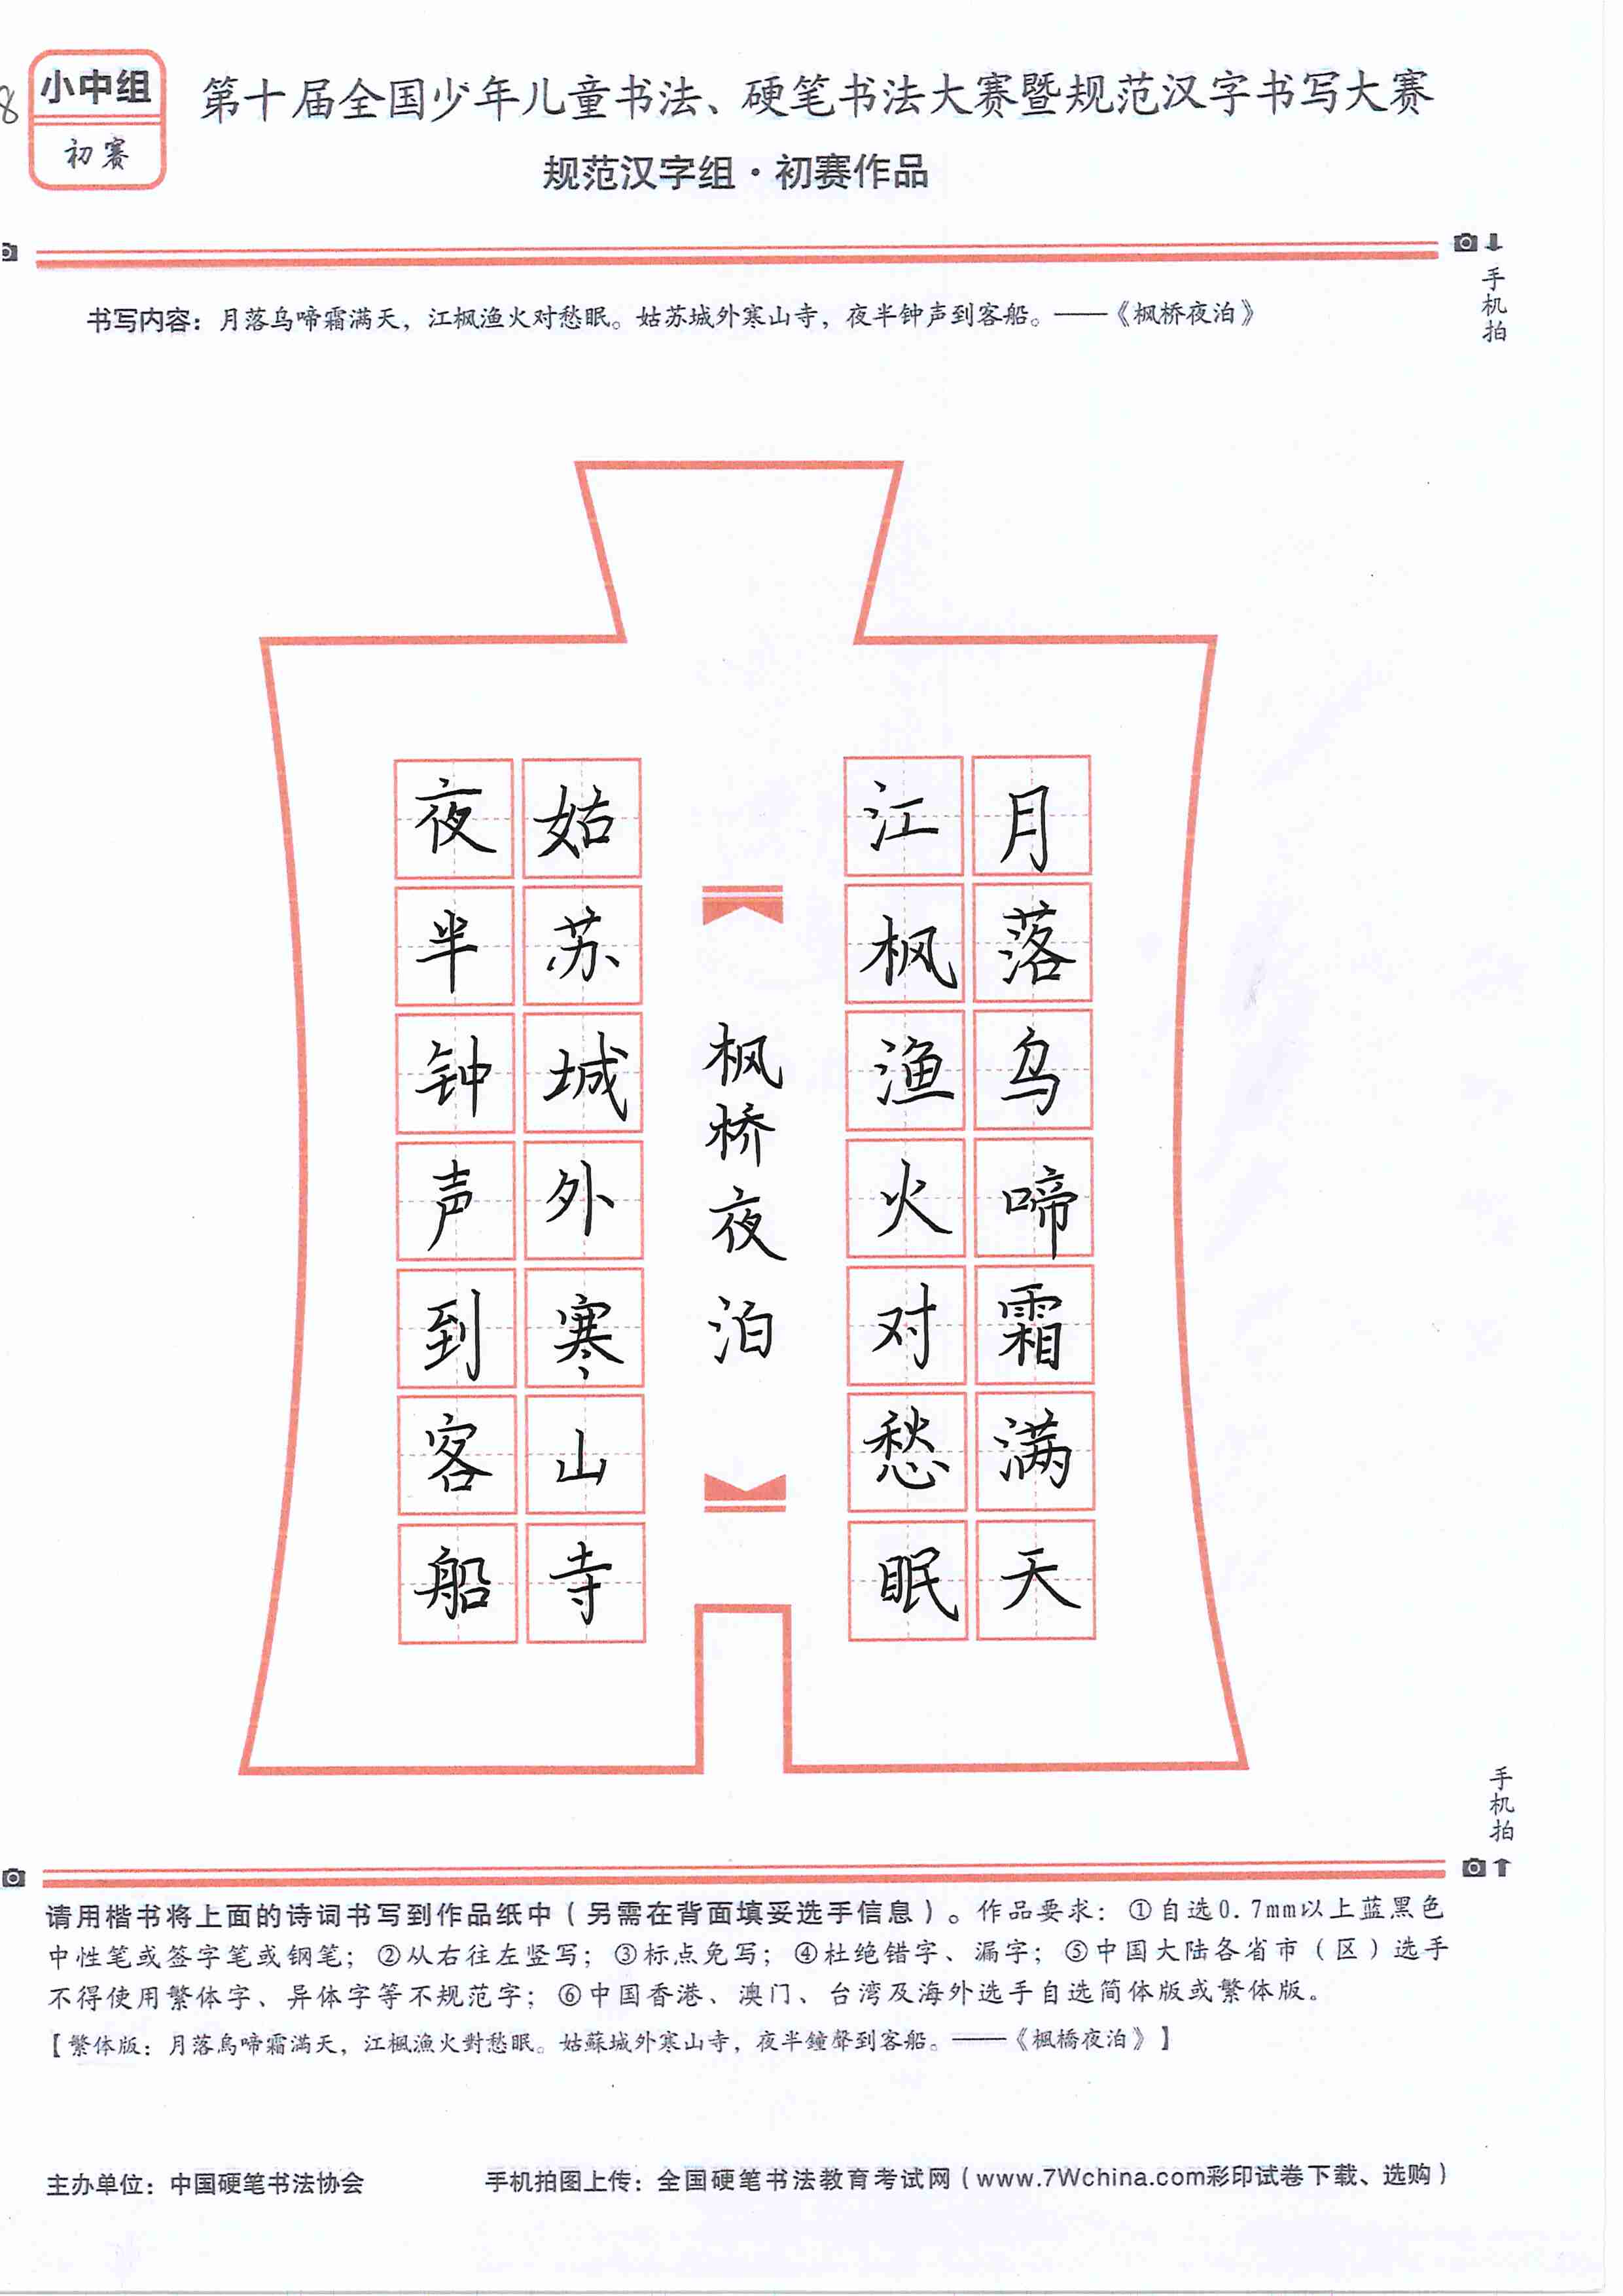 8
小中组
初赛
第十届全国少年儿童书法、硬笔书法大赛暨规范汉字书写大赛
规范汉字组·初赛作品
手机拍
书写内容：月落乌啼霜满天，江枫渔火对愁眠。姑苏城外寒山寺，夜半钟声到客船。——《枫桥夜泊》
月落乌啼霜满天
江枫渔火对愁眠
枫桥夜泊
姑苏城外寒山寺
夜半钟声到客船
手机拍
请用楷书将上面的诗词书写到作品纸中（另需在背面填妥选手信息）。作品要求：①自选0.7mm以上蓝黑色
中性笔或签字笔或钢笔；②从右往左竖写；③标点免写；④杜绝错字、漏字；⑤中国大陆各省市（区）选手
不得使用繁体字、异体字等不规范字；⑥中国香港、澳门、台湾及海外选手自选简体版或繁体版。
【繁体版：月落烏啼霜滿天，江楓漁火對愁眠。姑蘇城外寒山寺，夜半鐘聲到客船。——《楓橋夜泊》】
主办单位：中国硬笔书法协会
手机拍图上传：全国硬笔书法教育考试网（www.7Wchina.com彩印试卷下载、选购）